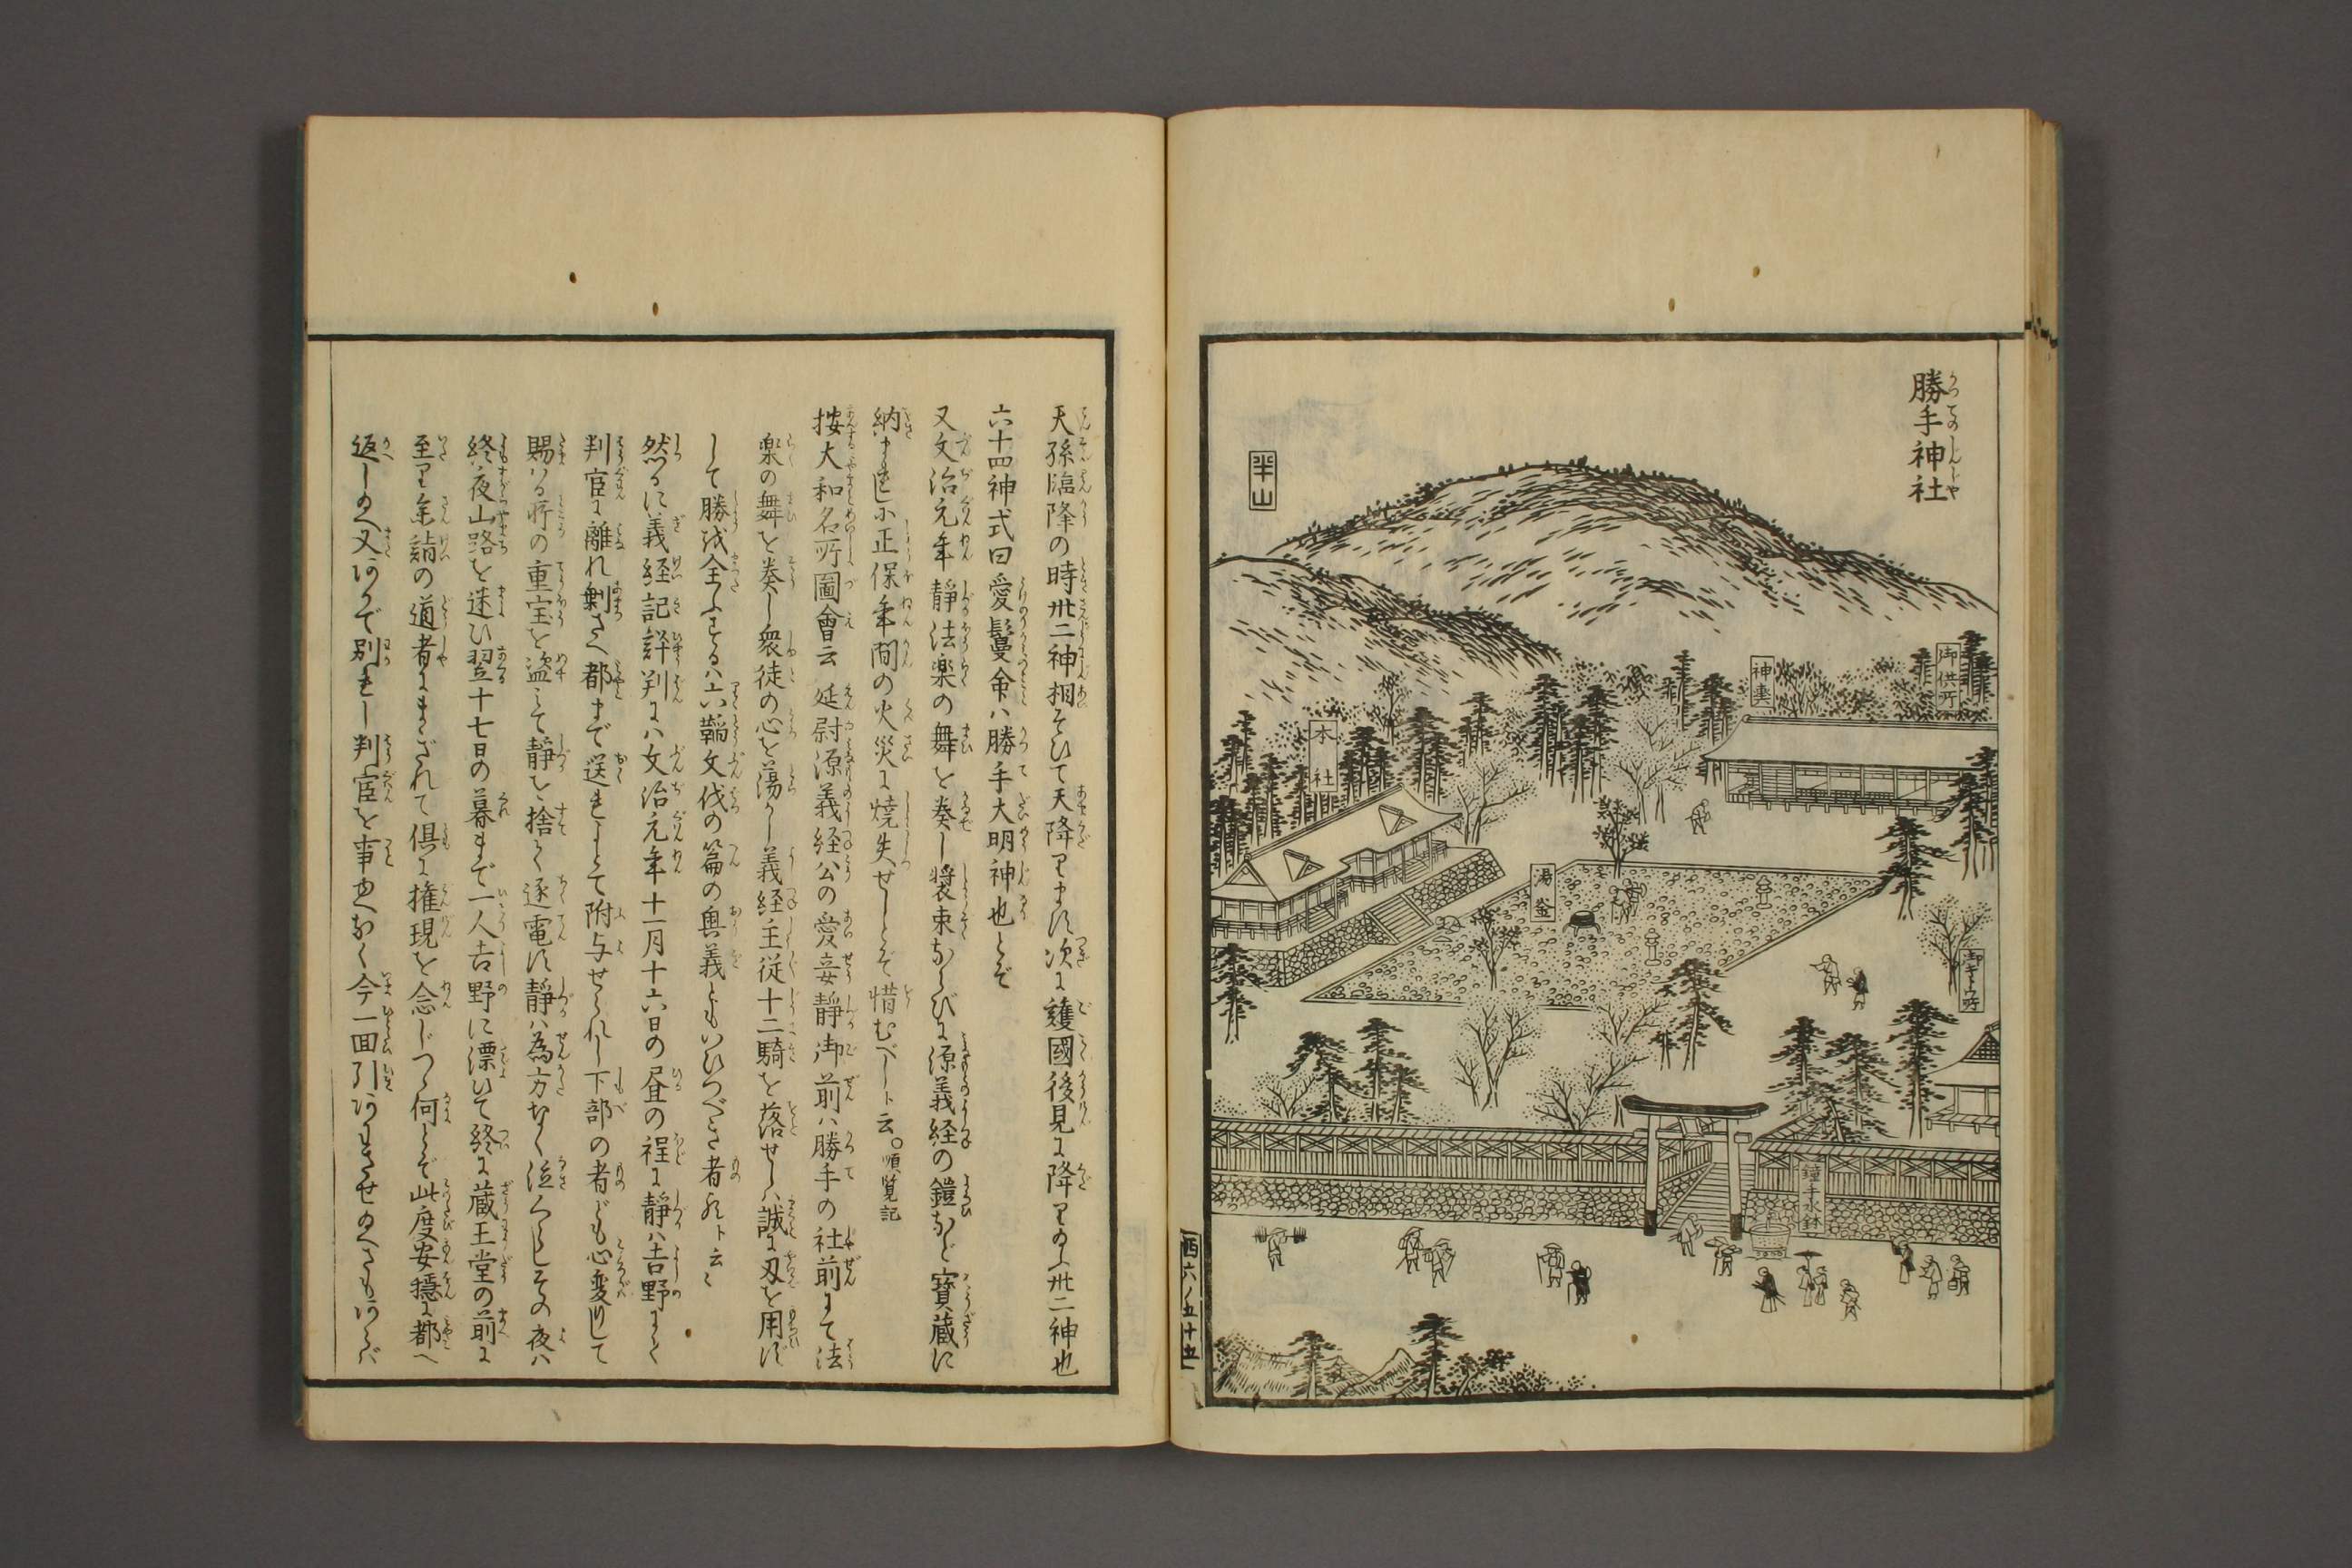 勝手神社
半山
御供所
神輿
本社
湯釜
鐘手水鉢
西六ノ五十五
天孫臨降の時卅二神相そひて天降ります次に護國後見に降りのふ卅二神也
六十四神式曰愛鬘命ハ勝手大明神也とぞ
又文治元年靜法楽の舞を奏し裝束ならびに源義経の鎧など寶蔵に
納まれしに正保年間の火災に焼失せしとぞ惜むべしト云。順覧記
按大和名所圖會云延尉源義経公の愛妾靜御前ハ勝手の社前にて法
楽の舞を奏し衆徒の心を蕩かし義経主従十二騎を落せしハ誠に刄を用ひず
して勝を全ふするハ六韜文伐の篇の奥義ともいひつべき者歟ト云〻
然るに義経記評判にハ文治元年十一月十六日の昼の程に靜ハ吉野にて
判官に離れ剰さへ都まで送れよとて附与せられし下部の者ども心変りして
賜ハる所の重宝を盗みて靜を捨て逐電す靜ハ為方なく泣くらしその夜ハ
終夜山路を迷ひ翌十七日の暮まで一人吉野に漂いて終に蔵王堂の前に
至り参詣の道者にまぎれて倶に権現を念じつゝ何とぞ此度安穏に都へ
返しのへ又あかで別れし判官を事ゆへなく今一回引あわせのへさもあらば